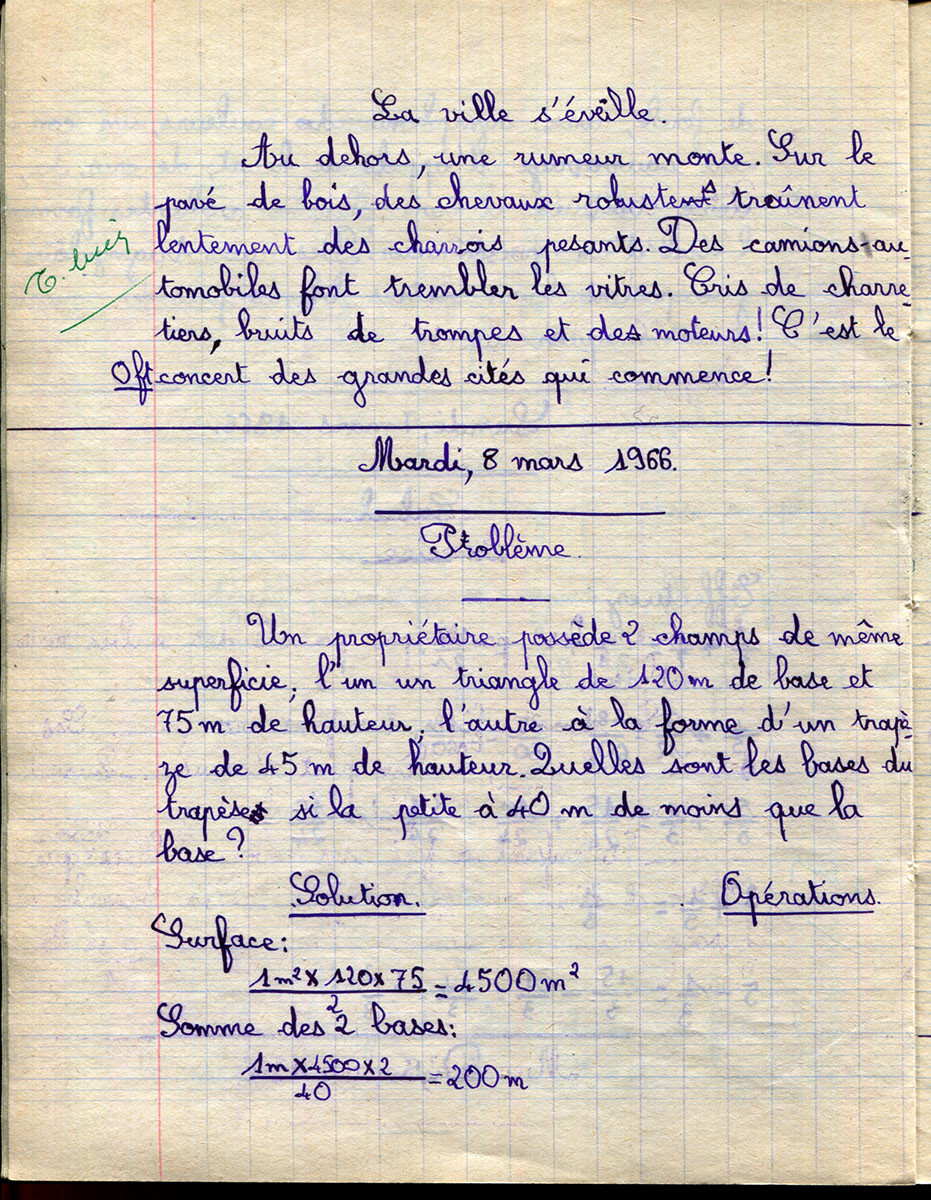 La ville s'éveille.
Au dehors, une rumeur monte. Sur le
pavé de bois, des chevaux robustes traînent
lentement des charrois pesants. Des camions-au-
T. bien
tomobiles font trembler les vitres. Cris de charre-
tiers, bruits de trompes et des moteurs! C'est le
Oft concert des grandes cités qui commence!
Mardi, 8 mars 1966.
Problème.
Un propriétaire possède 2 champs de même
superficie; l'un un triangle de 120 m de base et
75 m de hauteur; l'autre à la forme d'un trapè-
ze de 45 m de hauteur. Quelles sont les bases du
trapèse si la petite à 40 m de moins que la
base?
Solution. Opérations.
Surface:
1 m² x 120 x 75 / 2 = 4500 m²
Somme des 2 bases:
1 m x 4500 x 2 / 40 = 200 m